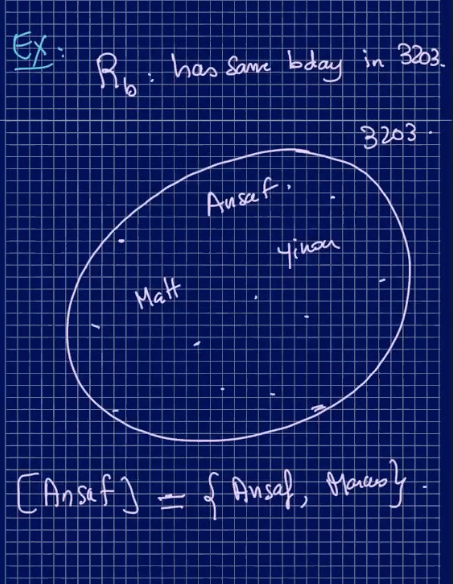 Ex:
R_b: has same bday in 3203.
3203.
Ansaf.
Yinou
Matt
[Ansaf] = { Ansaf, Marcus}.